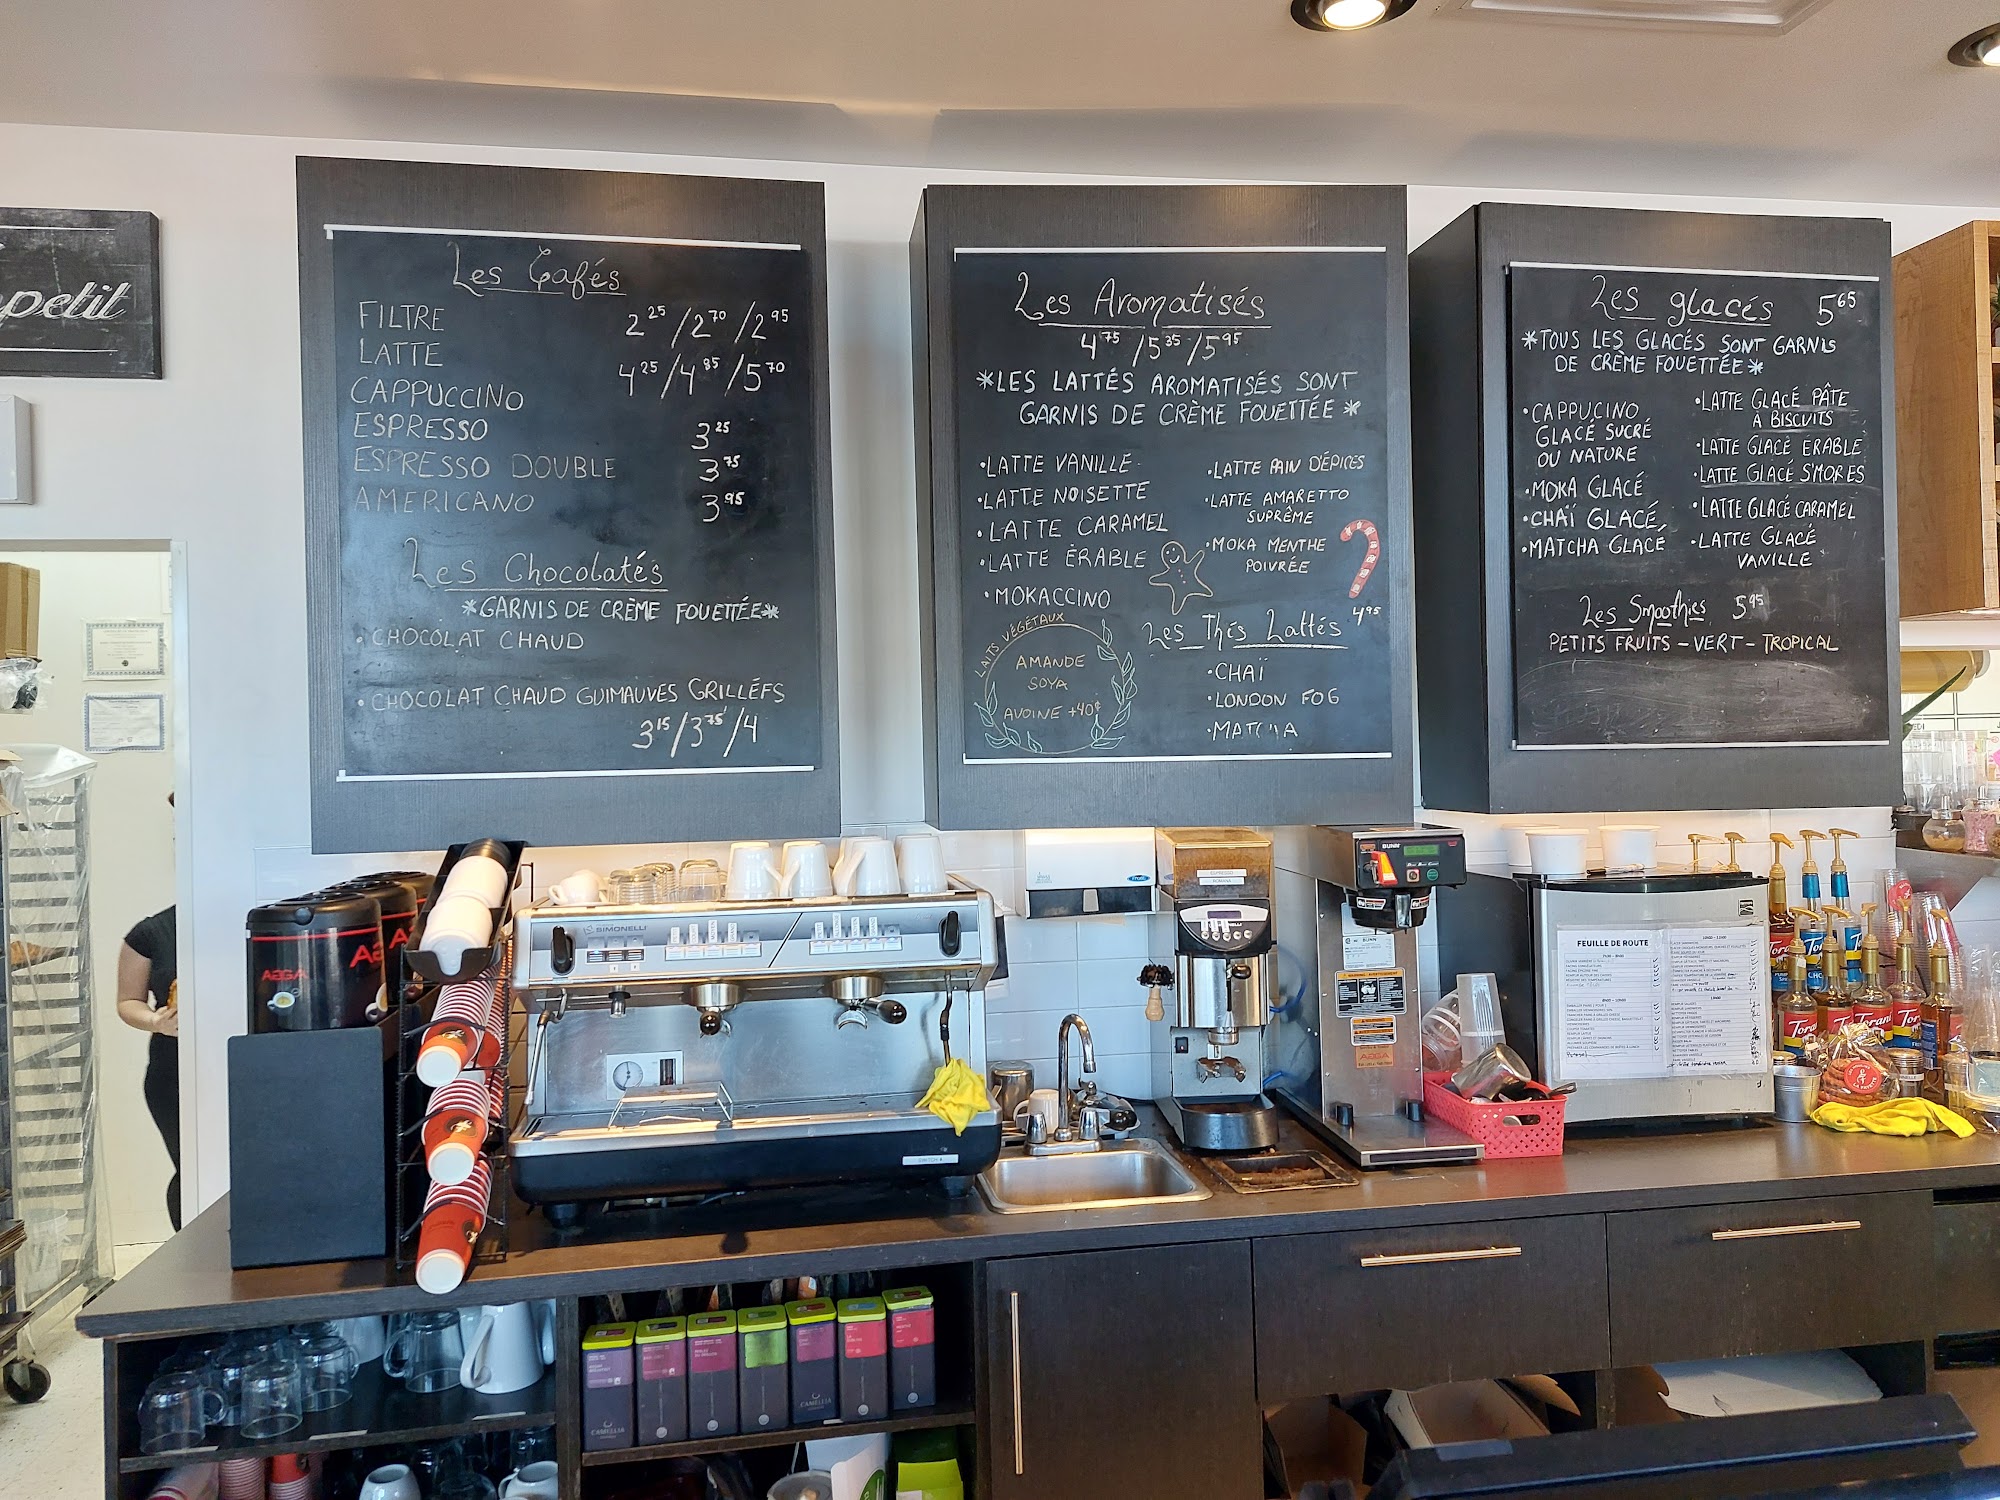 petit
Les Cafés
FILTRE 2 25 / 2 70 / 2 95
LATTE
CAPPUCCINO 4 25 / 4 85 / 5 70
ESPRESSO 3 25
ESPRESSO DOUBLE 3 75
AMERICANO 3 95
Les Chocolatés
*GARNIS DE CRÈME FOUETTÉE*
• CHOCOLAT CHAUD
• CHOCOLAT CHAUD GUIMAUVES GRILLÉES
3 15 / 3 75 / 4
Les Aromatisés
4 75 / 5 35 / 5 95
*LES LATTÉS AROMATISÉS SONT
GARNIS DE CRÈME FOUETTÉE *
• LATTE VANILLE
• LATTE NOISETTE
• LATTE CARAMEL
• LATTE ÉRABLE
• MOKACCINO
• LATTE PAIN D'ÉPICES
• LATTE AMARETTO
SUPRÊME
• MOKA MENTHE
POIVRÉE
LAITS VÉGÉTAUX
AMANDE
SOYA
AVOINE +40¢
Les Thés Lattés 4 95
• CHAÏ
• LONDON FOG
• MATCHA
Les glacés 5 65
*TOUS LES GLACÉS SONT GARNIS
DE CRÈME FOUETTÉE*
• CAPPUCINO
GLACÉ SUCRÉ
OU NATURE
• MOKA GLACÉ
• CHAÏ GLACÉ
• MATCHA GLACÉ
• LATTE GLACÉ PÂTE
À BISCUITS
• LATTE GLACÉ ERABLE
• LATTE GLACÉ S'MORES
• LATTE GLACÉ CARAMEL
• LATTE GLACÉ
VANILLE
Les Smoothies 5 95
PETITS FRUITS - VERT - TROPICAL
SIMONELLI
BUNN
ESPRESSO
AGGA
FEUILLE DE ROUTE
AVERTISSEMENT
Torani
CAMELLIA